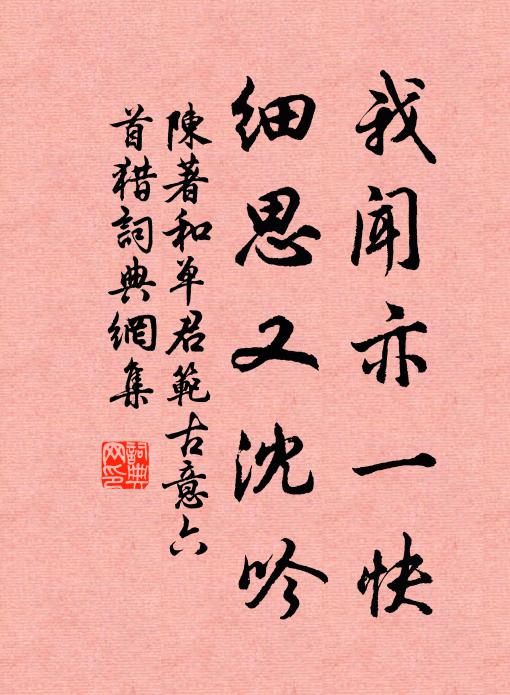 我闻亦一快
细思又沈吟
陳著和单君範古意六
首猎詞典網集
詞典
网印